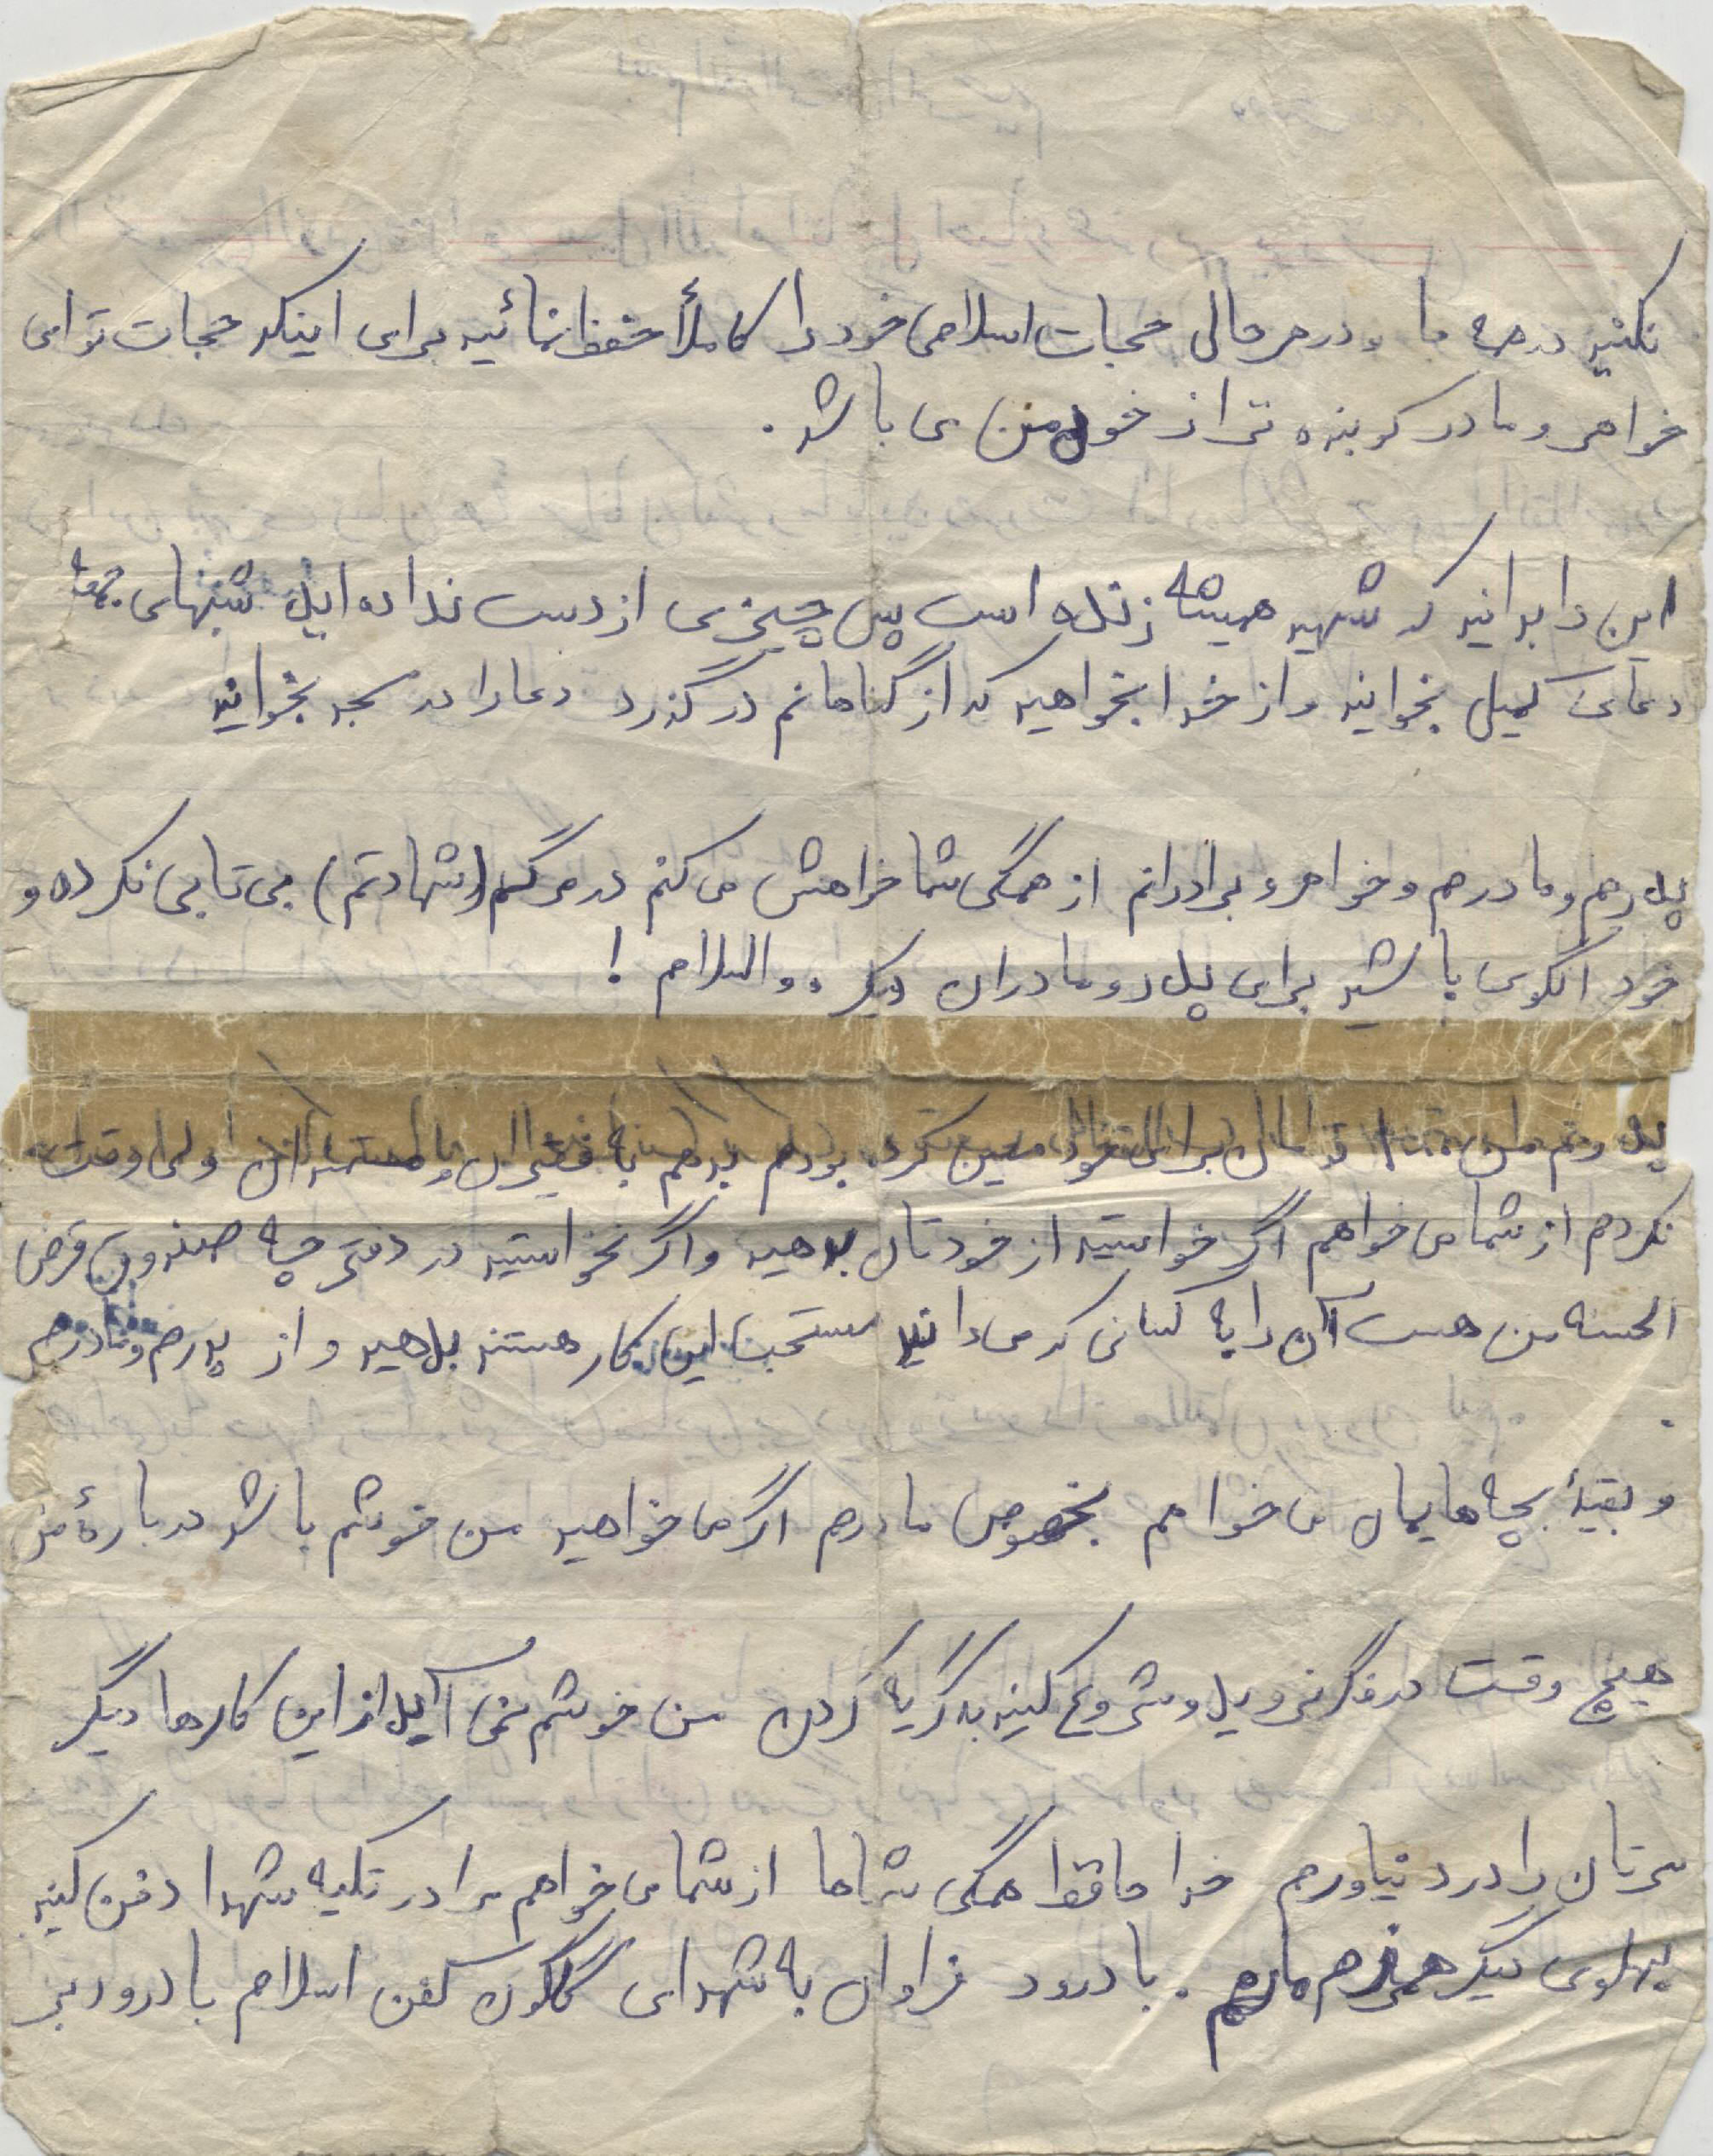 نکنید در همه جا و در هر حالی حجاب اسلامی خود را کاملاً حفظ نمائید برای اینکه حجاب تو ای
خواهر و مادر کوبنده تر از خون من می باشد .
این را بدانید که شهید همیشه زنده است پس چیزی از دست نداده اید شبهای جمعه
دعای کمیل بخوانید و از خدا بخواهید که از گناهانم در گذرد دعا را در مسجد بخوانید
پدرم و مادرم و خواهر و برادرانم از همگی شما خواهش می کنم در مرگم (شهادتم) بی تابی نکرده و
خود الگوی باشید برای پدر و مادران دیگر . والسلام !
برای خود معین کرده بودم بدهم به فقیران و مستمندان ولی وقت
نکردم از شما می خواهم اگر خواستید از خودتان بدهید و اگر نخواستید در دفترچه صندوق قرض
الحسنه من هست آن را به کسانی که می دانید مستحب این کار هستند بدهید و از پدرم و مادرم
و بقیهٔ بچه هایمان می خواهم بخصوص مادرم اگر می خواهید من خوشم باشد دربارهٔ من
هیچ وقت در فکر نروید و شروع کنید به گریه کردن من خوشم نمی آید از این کارها دیگر
سرتان را درد نیاورم خدا حافظ همگی شماها از شما می خواهم مرا در تکیه شهدا دفن کنید
پهلوی دیگر همرزمانم . با درود فراوان به شهدای گلگون کفن اسلام با درود بر